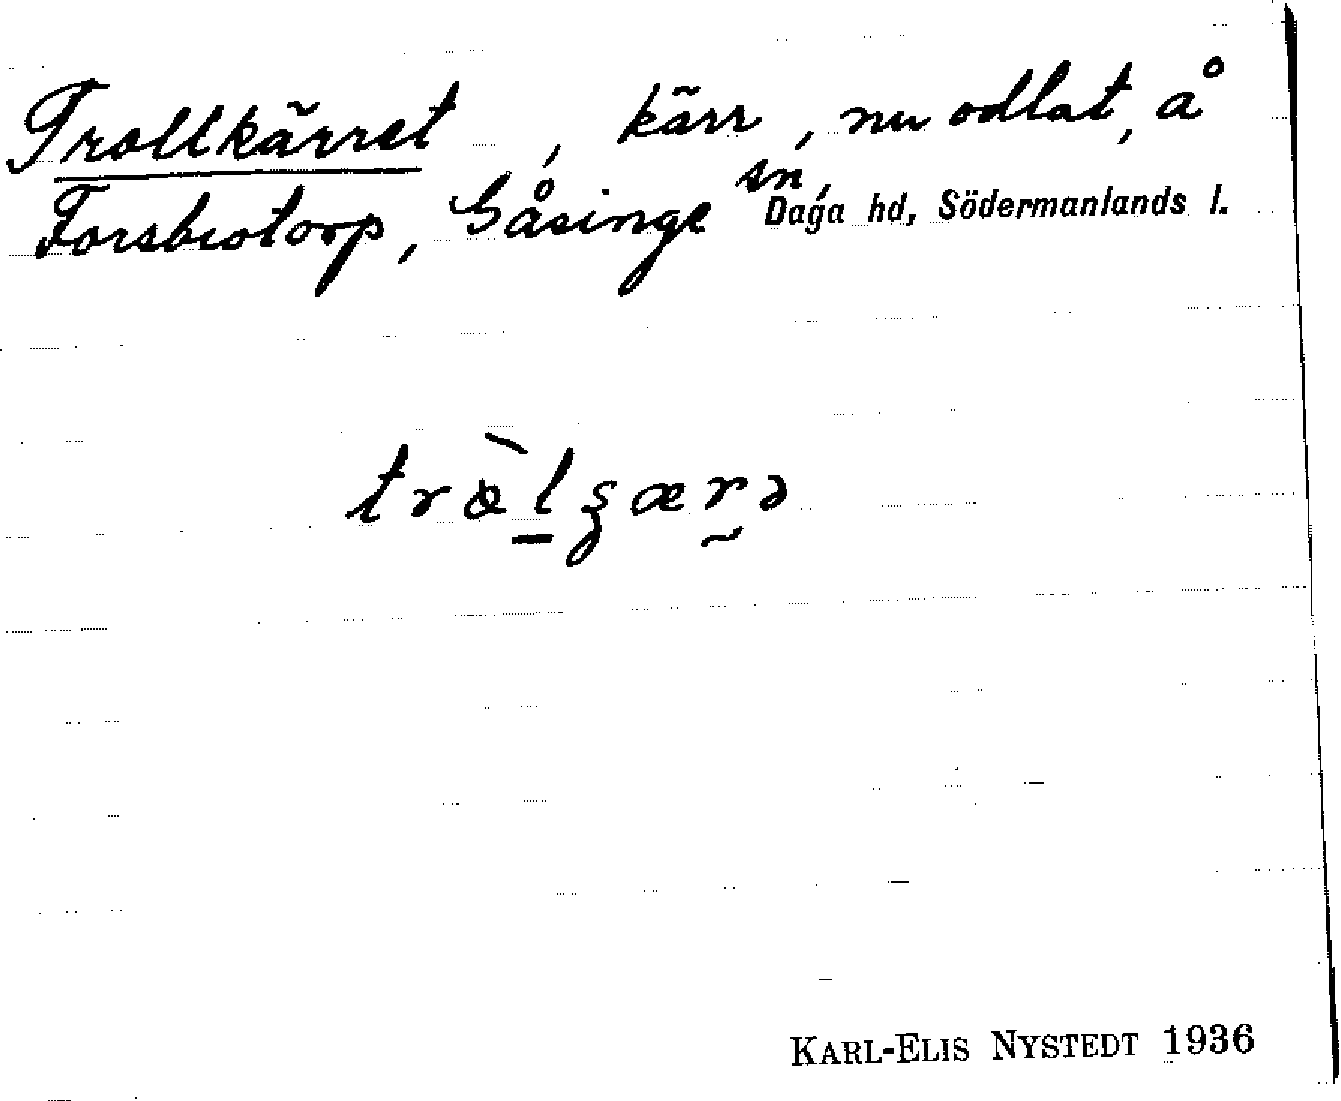 Trollkärret, kärr, nu odlat, å
Forsbrotorp, Gåsinge sn, Daga hd, Södermanlands l.
KARL-ELIS NYSTEDT 1936